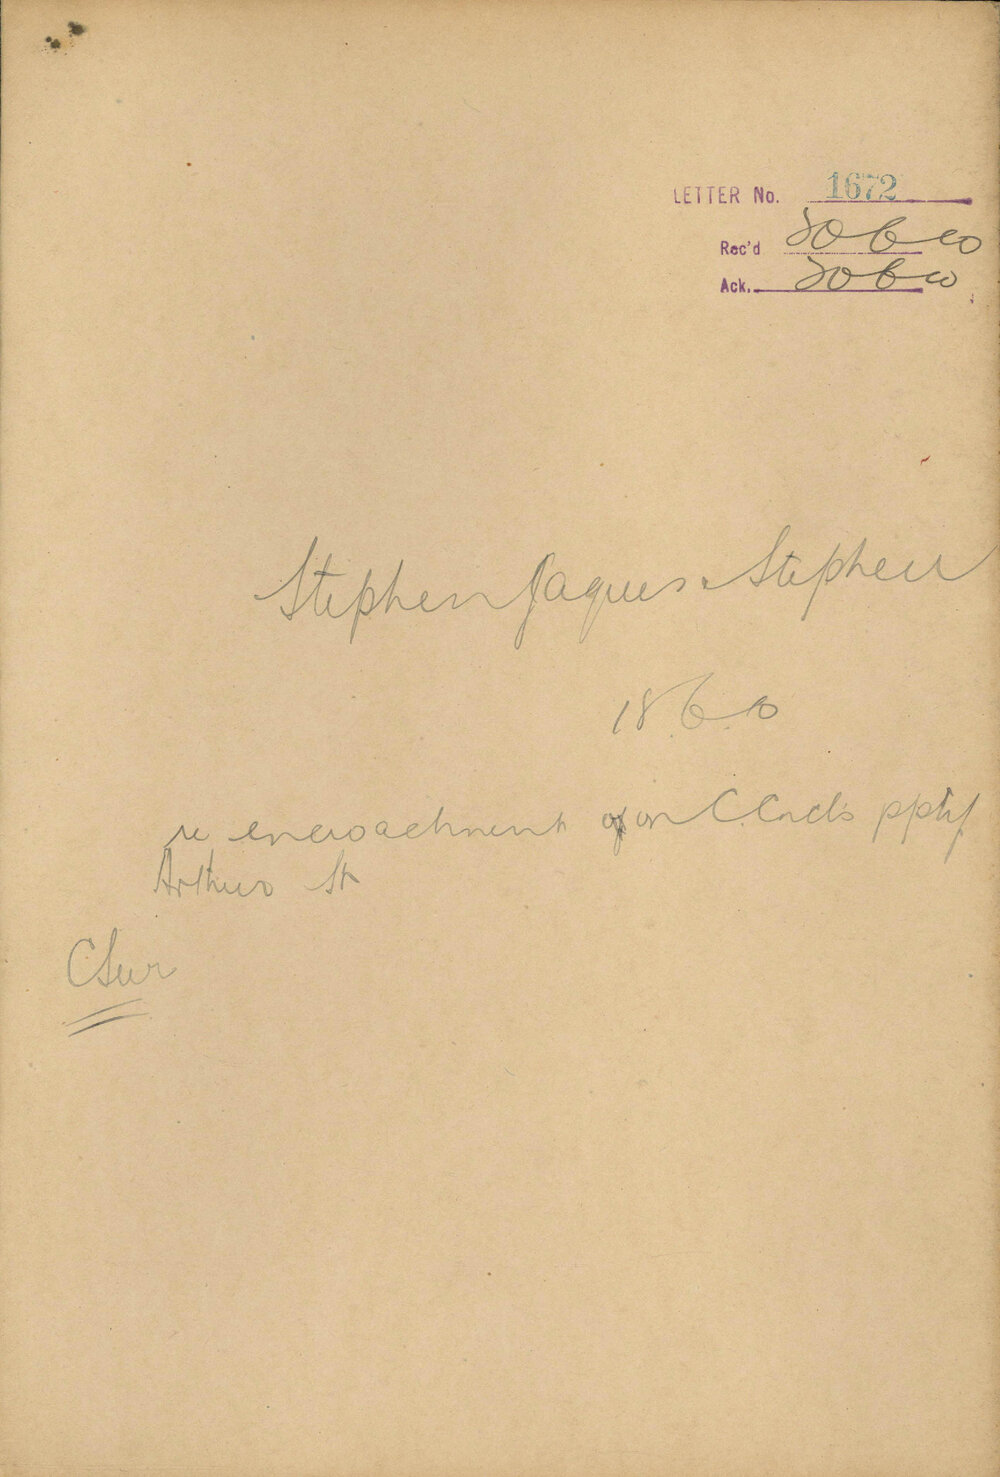 LETTER No. 1672
Rec'd
Ack.
Stephen Jaques & Stephen
18.6.
re encroachment on C. Cncl's ppty
Arthur St
C Sur